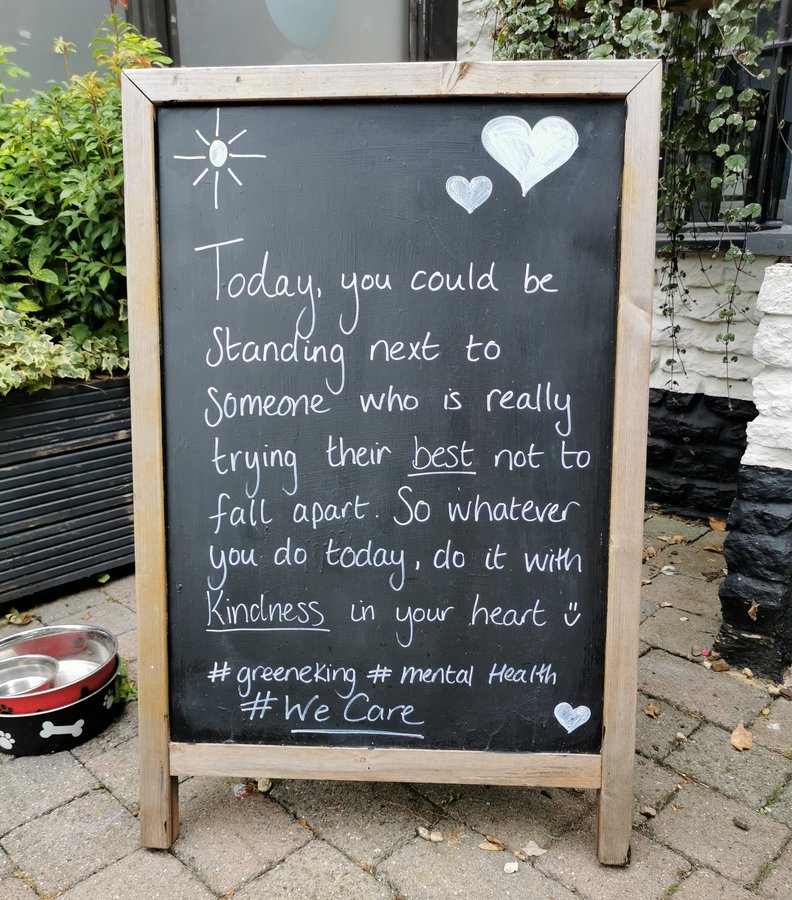 Today, you could be
Standing next to
Someone who is really
trying their best not to
fall apart. So whatever
you do today, do it with
Kindness in your heart
#greeneKing # mental Health
# We Care